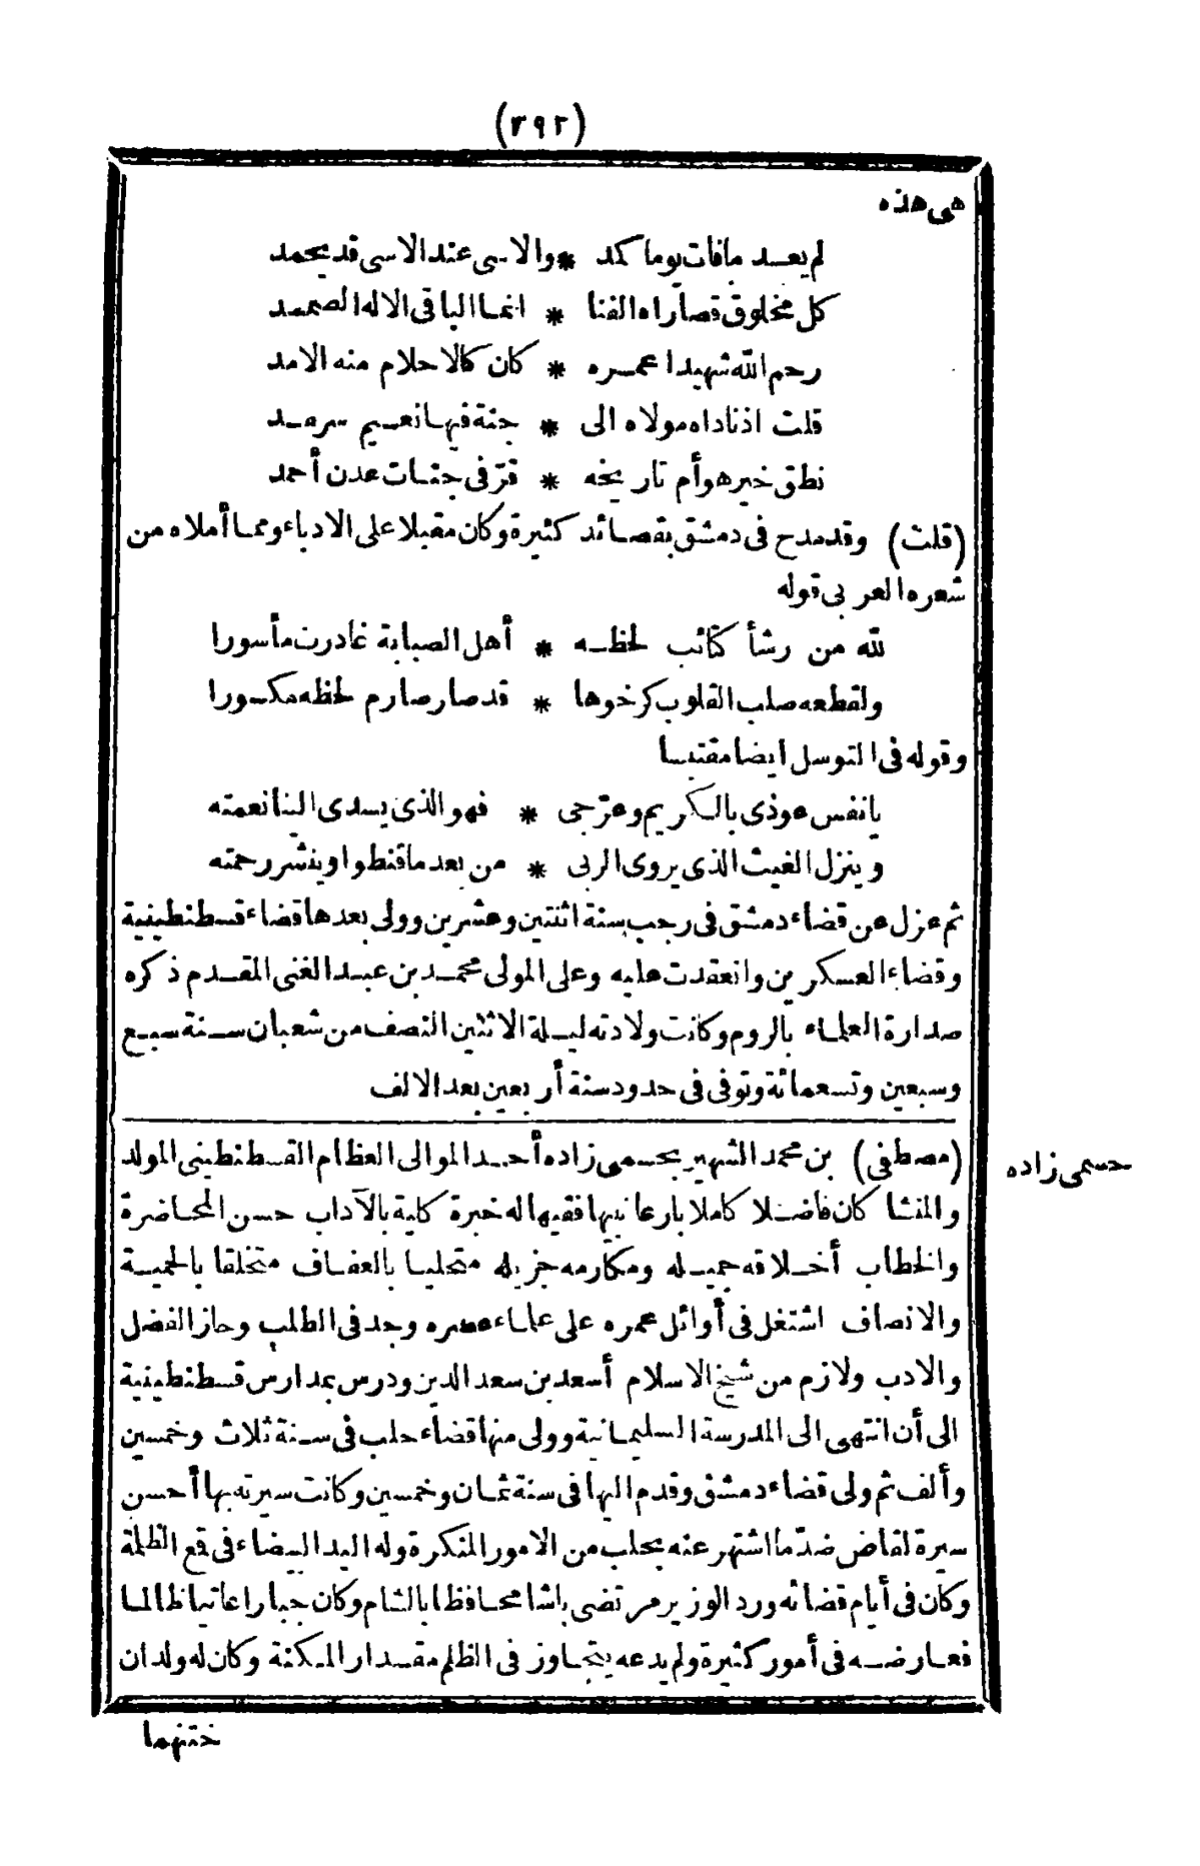 (٣٩٢)
هى هذه
لم يعد مافات يوما كمد * والاسى عند الاسى قد يحمد
كل مخلوق قصاراه الفنا * انما الباقى الاله الصمد
رحم الله شهيدا عمره * كان كالاحلام منه الامد
قلت اذ ناداه مولاه الى * جنة فيها نعيم سرمد
نطق خير هو أم تاريخه * قرّ فى جنات عدن أحمد
(قلت) وقد مدح فى دمشق بقصائد كثيرة وكان مقبلا على الادباء ومما أملاه من
شعره العربى قوله
لله من رشأ كتائب لحظه * أهل الصبابة غادرت مأسورا
ولقطعه صلب القلوب كرخوها * قد صار صارم لحظه مكسورا
وقوله فى التوسل ايضا مقتبسا
يا نفس عوذى بالكريم وعرّجى * فهو الذى يسدى الينا نعمته
وينزل الغيث الذى يروى الربى * من بعد ما قنطوا وينشر رحمته
ثم عزل عن قضاء دمشق فى رجب سنة اثنتين وعشرين وولى بعدها قضاء قسطنطينية
وقضاء العسكرين وانعقدت عليه وعلى المولى محمد بن عبد الغنى المقدم ذكره
صدارة العلماء بالروم وكانت ولادته ليلة الاثنين النصف من شعبان سنة سبع
وسبعين وتسعمائة وتوفى فى حدود سنة أربعين بعد الالف
(مصطفى) بن محمد الشهير بحسمى زاده أحد الموالى العظام القسطنطينى المولد
حسمى زاده
والمنشا كان فاضلا كاملا بارعا نبيها فقيها له خبرة كلية بالآداب حسن المحاضرة
والخطاب أخلاقه جميله ومكارمه جزيله متحليا بالعفاف متخلقا بالحمية
والانصاف اشتغل فى أوائل عمره على علماء عصره وجد فى الطلب وحاز الفضل
والادب ولازم من شيخ الاسلام أسعد بن سعد الدين ودرس بمدارس قسطنطينية
الى أن انتهى الى المدرسة السليمانية وولى منها قضاء حلب فى سنة ثلاث وخمسين
وألف ثم ولى قضاء دمشق وقدم اليها فى سنة ثمان وخمسين وكانت سيرته بها أحسن
سيرة لقاض ضدّ ما اشتهر عنه بحلب من الامور المنكرة وله اليد البيضاء فى قمع الظلمة
وكان فى أيام قضائه ورد الوزير مرتضى باشا محافظا بالشام وكان جبارا عاتيا ظالما
فعارضه فى أمور كثيرة ولم يدعه يتجاوز فى الظلم مقدار المكنة وكان له ولدان
ختنهما